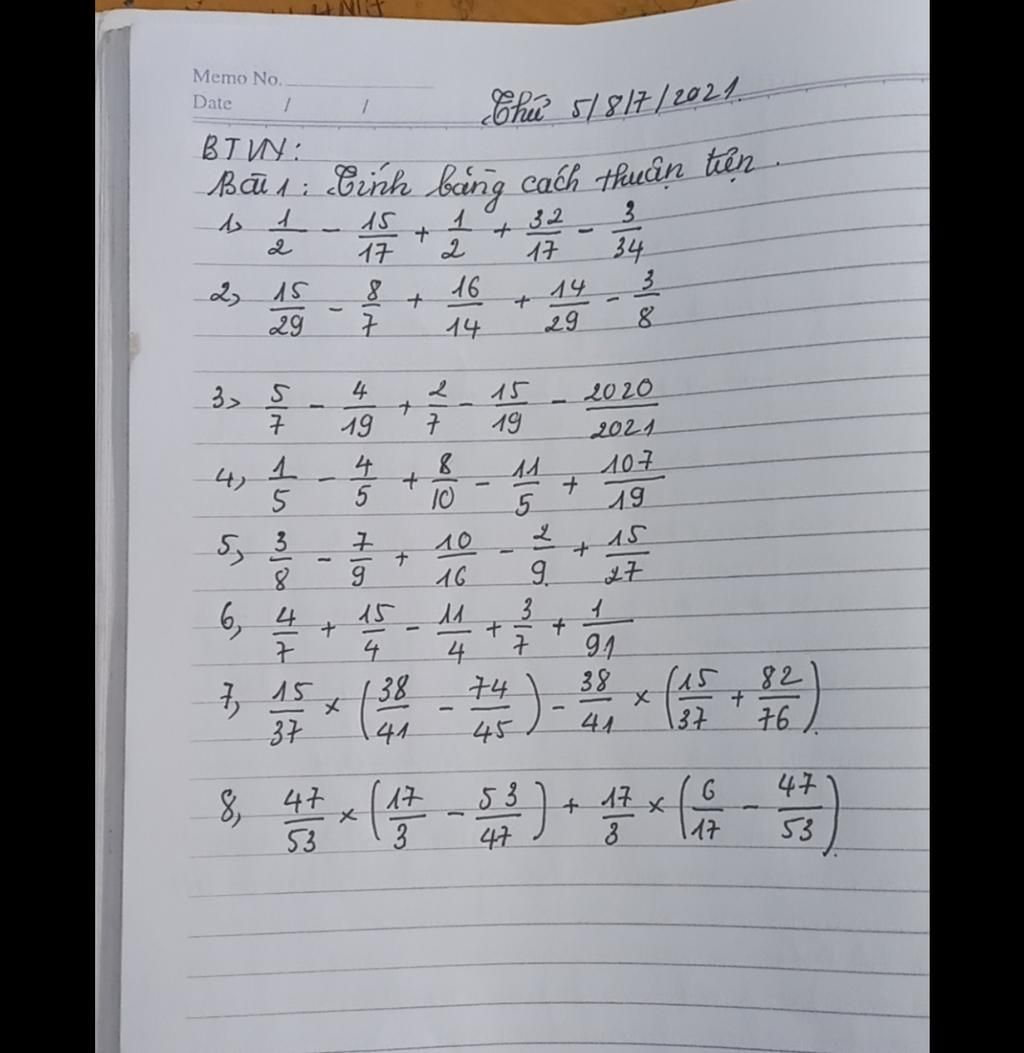 Memo No.
Date / /
Thứ 5/8/7/2021
BTVN:
Bài 1: Tính bằng cách thuận tiện.
1, 1/2 - 15/17 + 1/2 + 32/17 - 3/34
2, 15/29 - 8/7 + 16/14 + 14/29 - 3/8
3, 5/7 - 4/19 + 2/7 - 15/19 - 2020/2021
4, 1/5 - 4/5 + 8/10 - 11/5 + 107/19
5, 3/8 - 7/9 + 10/16 - 2/9 + 15/27
6, 4/7 + 15/4 - 11/4 + 3/7 + 1/91
7, 15/37 × (38/41 - 74/45) - 38/41 × (15/37 + 82/76)
8, 47/53 × (17/3 - 53/47) + 17/3 × (6/17 - 47/53)